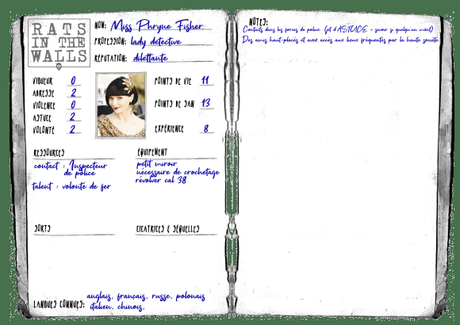 RATS
IN THE
WALLS
NOM: Miss Phryne Fisher
PROFESSION: lady detective
RÉPUTATION: dilettante
VIGUEUR 0
ADRESSE 2
VIOLENCE 0
ASTUCE 2
VOLONTÉ 2
POINTS DE VIE 11
POINTS DE SAN 13
EXPÉRIENCE 8
RESSOURCES
contact : Inspecteur
de police
talent : volonté de fer
ÉQUIPEMENT
petit miroir
nécessaire de crochetage
révolver cal 38
SORTS
CICATRICES & SÉQUELLES
LANGUES CONNUES: anglais, français, russe, polonais
italien, chinois.
NOTES:
Contacts dans les forces de police (jet d'ASTUCE - savoir si quelqu'un ment)
Des amis haut-placés et avec accès aux lieux fréquentés par la haute société